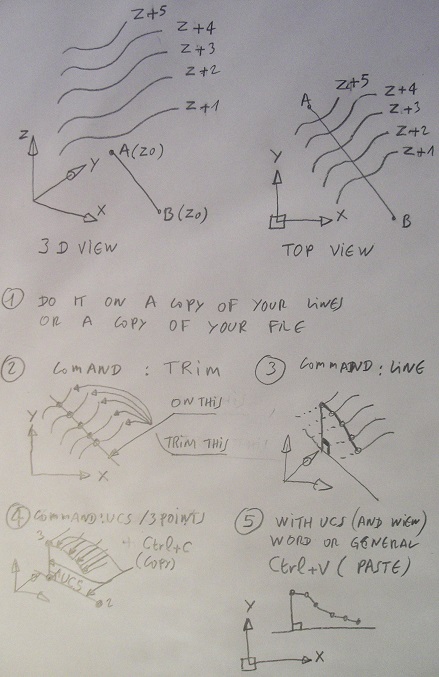 Z+5
Z+4
Z+3
Z+2
Z+1
Z
Y
X
A(Z0)
B(Z0)
3D VIEW
Z+5
Z+4
Z+3
Z+2
Z+1
A
B
Y
X
TOP VIEW
① DO IT ON A COPY OF YOUR LINES
OR A COPY OF YOUR FILE
② COMAND : TRIM
ON THIS
TRIM THIS
Y
X
③ COMMAND: LINE
④ COMMAND: UCS /3 POINTS
+ Ctrl+C
(COPY)
3
1
UCS
2
⑤ WITH UCS (AND VIEW)
WORD OR GENERAL
Ctrl+V (PASTE)
Y
X